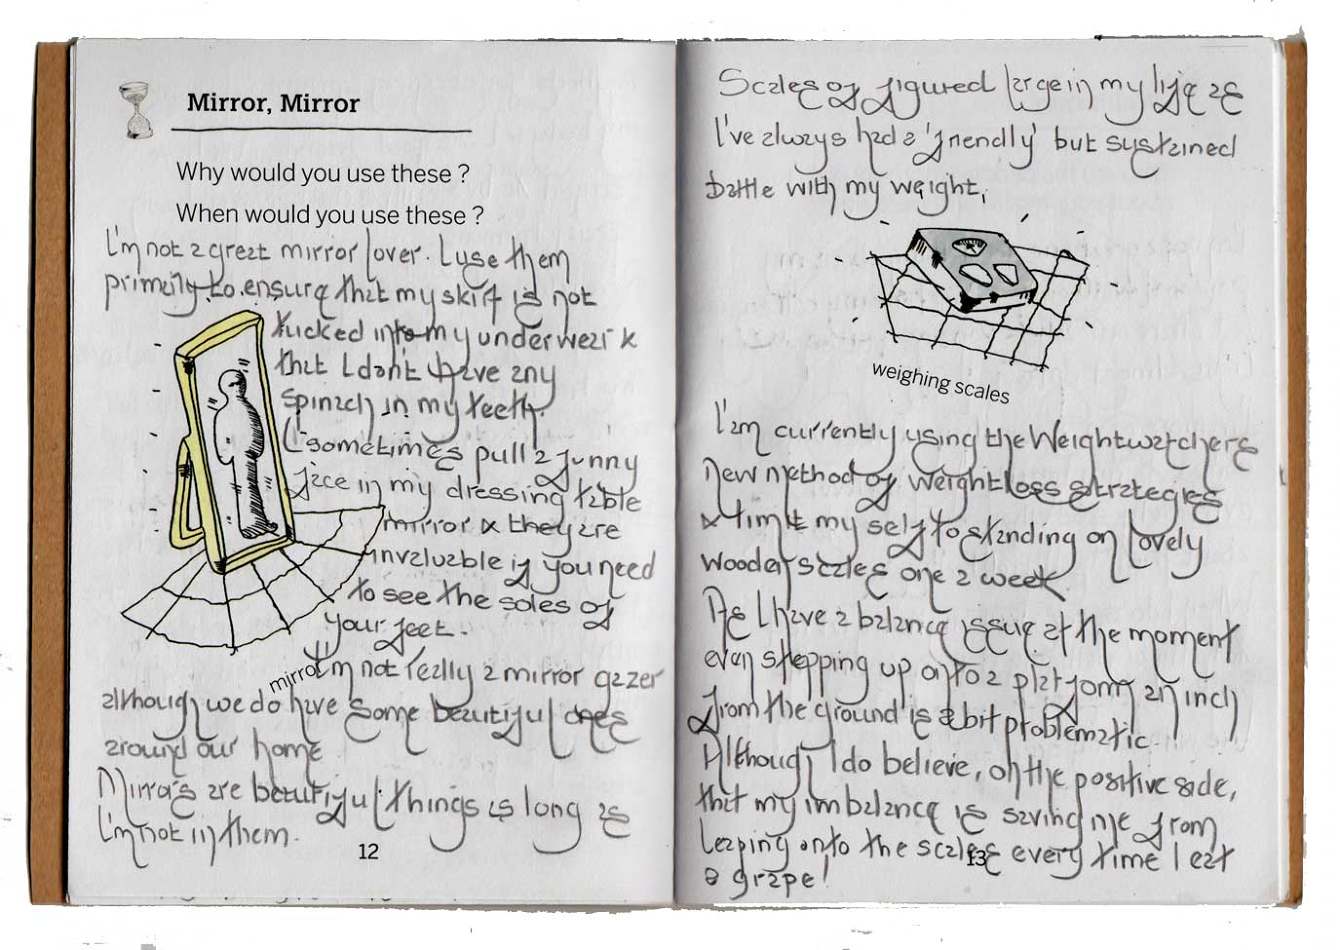 Mirror, Mirror
Why would you use these ?
When would you use these ?
I'm not a great mirror lover. I use them
primarily to ensure that my skirt is not
tucked into my underwear &
that I don't have any
spinach in my teeth.
I sometimes pull a funny
face in my dressing table
mirror & they are
invaluable if you need
to see the soles of
your feet.
mirror
I'm not really a mirror gazer
although we do have some beautiful ones
around our home
Mirrors are beautiful things as long as
I'm not in them.
12
Scales of figured large in my life as
I've always had a 'friendly' but sustained
battle with my weight.
weighing scales
I am currently using the Weightwatchers
new method of weightloss strategies
& limit my self to standing on lovely
wooden scales one a week
As I have a balance issue at the moment
even stepping up onto a platform an inch
from the ground is a bit problematic.
Although I do believe, on the positive side,
that my imbalance is saving me from
leaping onto the scales every time I eat
a grape!
13